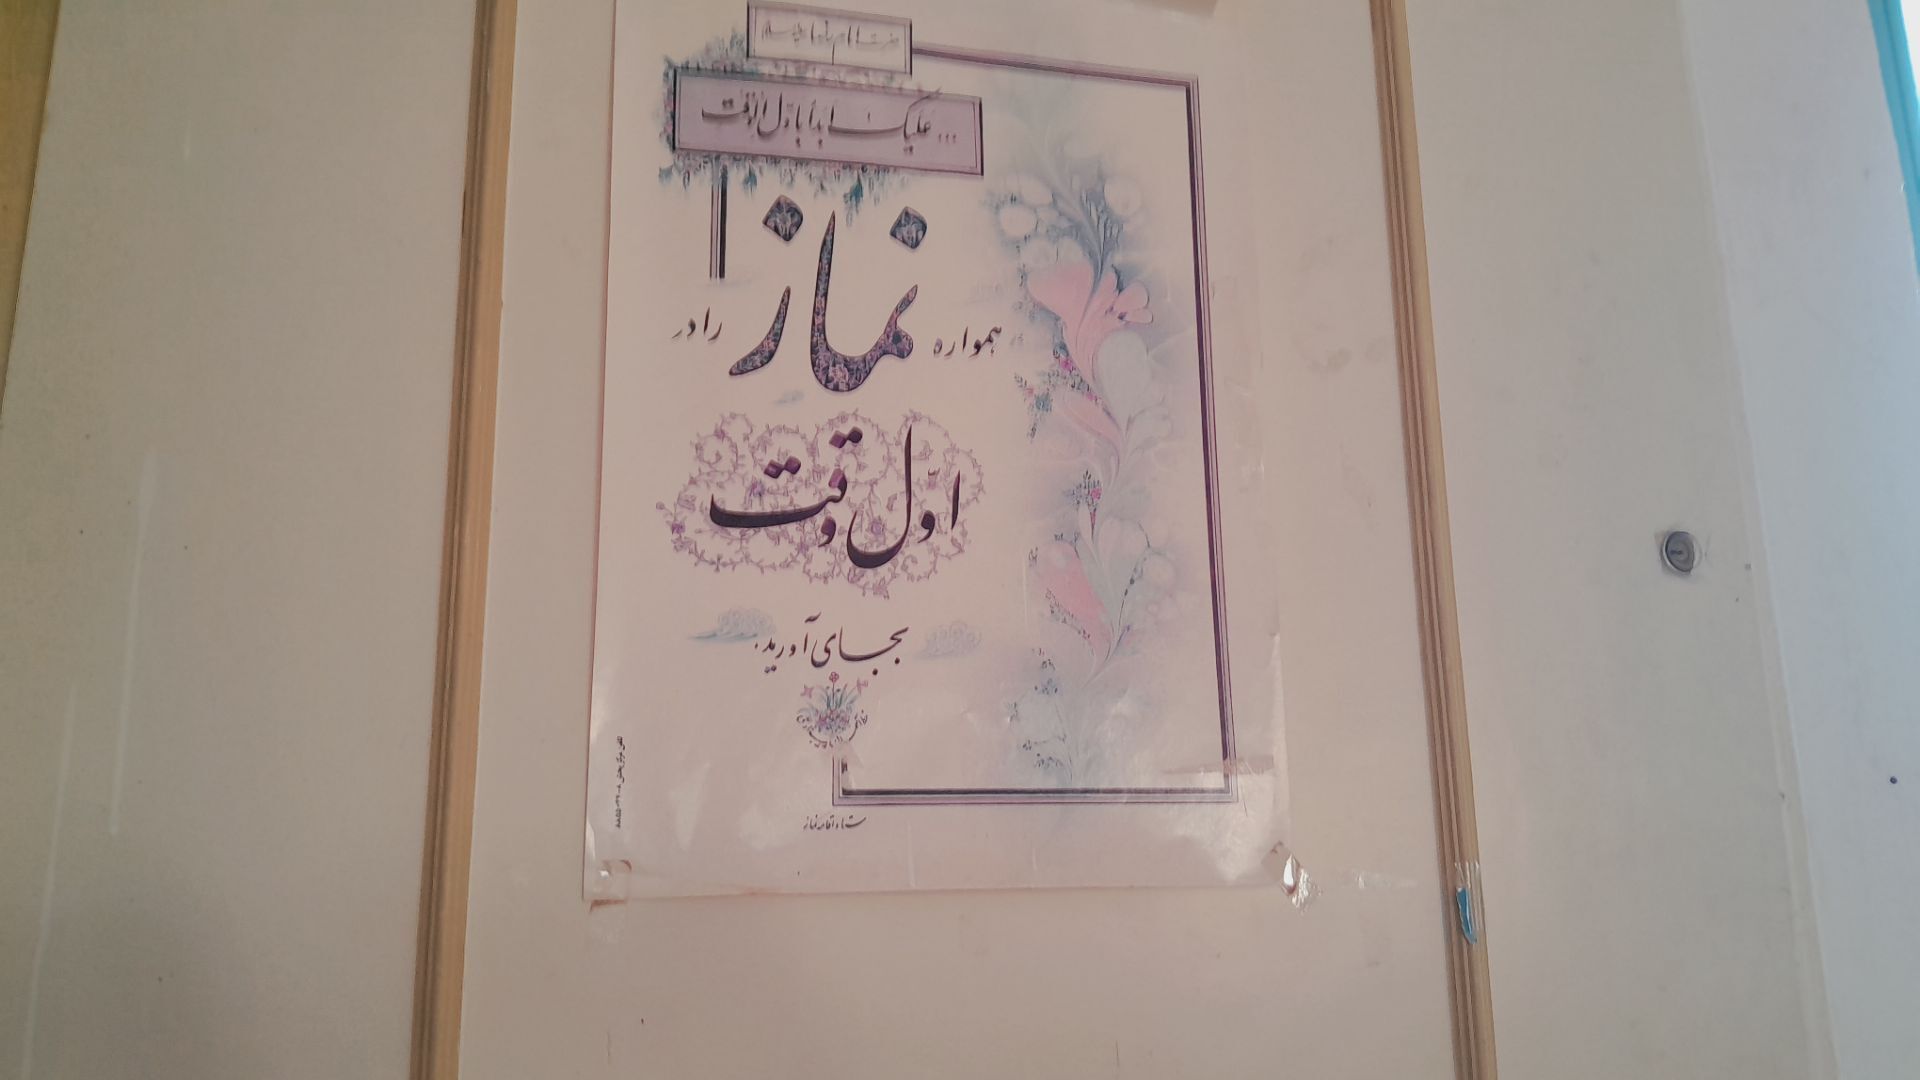 حضرت امام رضا علیه السلام
... علیک ابداً باوّل الوقت
همواره نماز را در
اوّل وقت
بجای آورید.
ستاد اقامه نماز
تلفن مرکز پخش